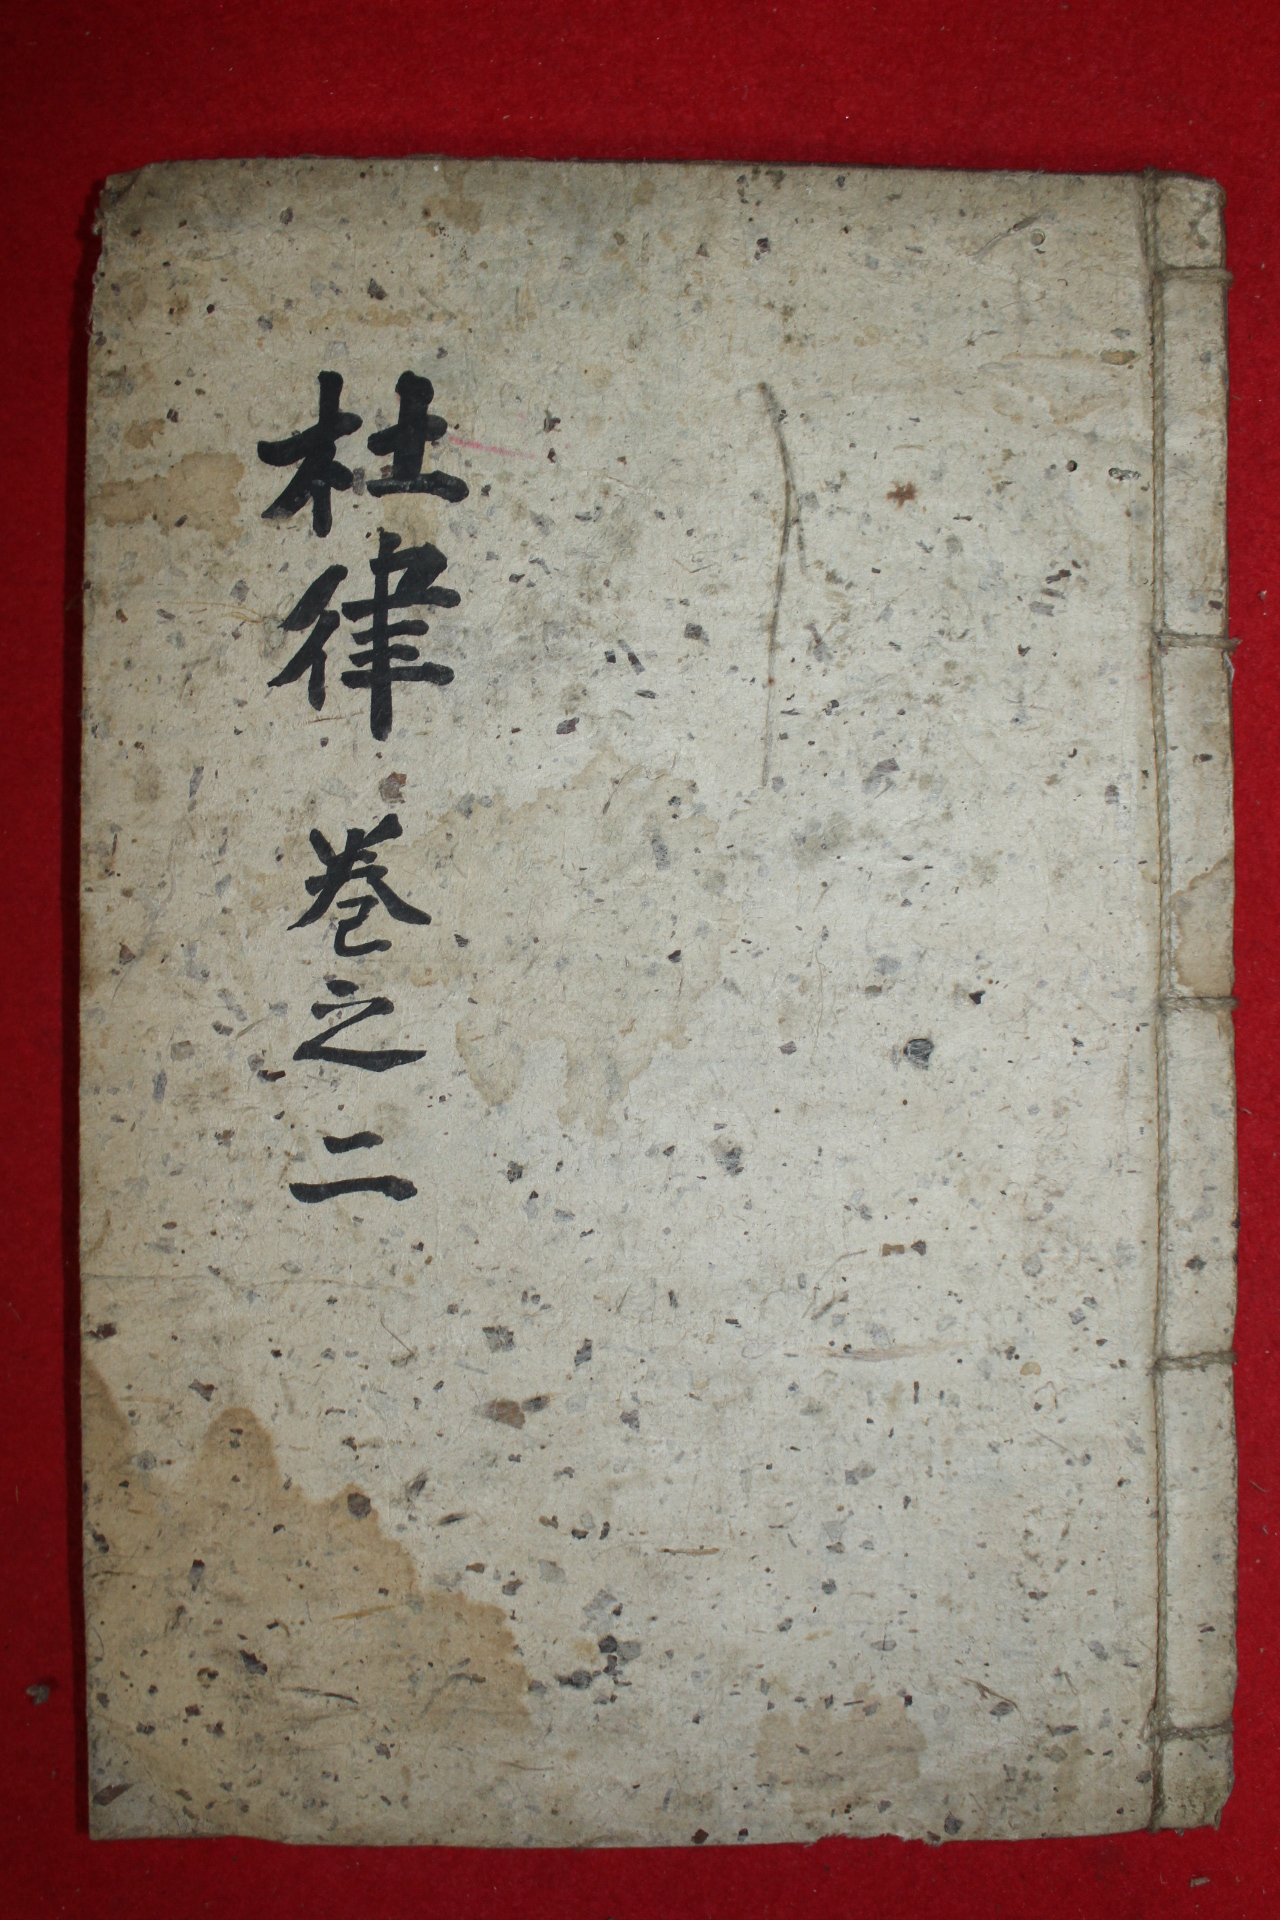 杜律 卷之二